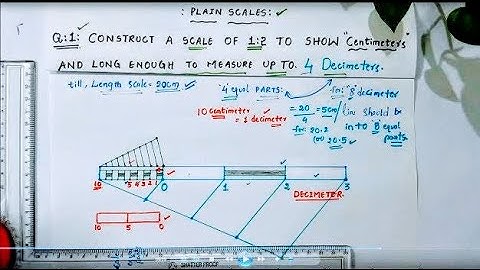 : PLAIN SCALES:
Q:1: CONSTRUCT A SCALE OF 1:2 TO SHOW "Centimeters"
AND LONG ENOUGH TO MEASURE UP TO 4 Decimeters.
till, Length Scale = 20cm
"4" equal PARTS:
for: "8" decimeter
10 Centimeter
= 1 decimeter
= 20/4 = 5cm
line should be
in to 8 equal
parts.
for: 20.2
(or) 20.5
10 5 4 3 2 1 0 1 2 3
DECIMETER.
10 5 0
SHATTER PROOF